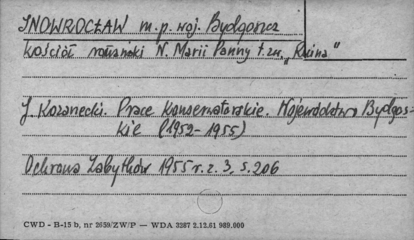 INOWROCŁAW m.p. woj. Bydgoszcz
Kościół romański N. Marii Panny t.zw. „Ruina"
J. Kozanecki. Prace Konserwatorskie. Województwo Bydgos-
kie (1952-1955)
Ochrona Zabytków 1955 r. z. 3, s. 206
CWD - H-15 b, nr 2659/ZW/P — WDA 3287 2.12.61 989.000